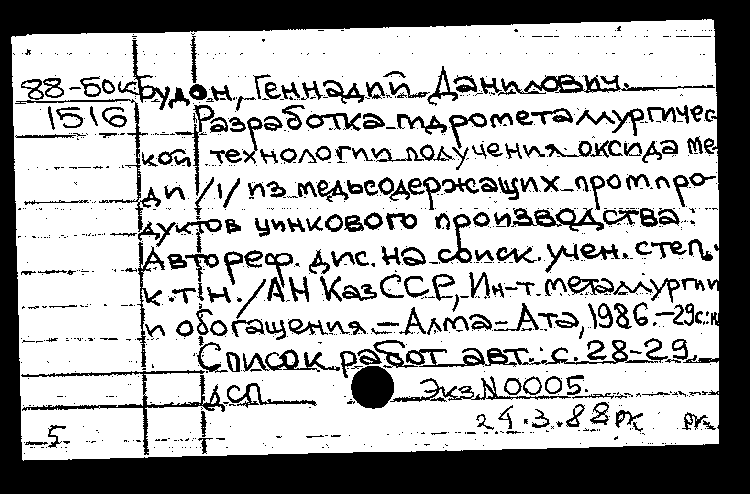 88-50к Будон, Геннадий Данилович.
1516 Разработка гидрометаллургичес
кой технологии получения оксида ме
ди /1/ из медьсодержащих промпро-
дуктов цинкового производства:
Автореф. дис. на соиск. учен. степ.
к.т.н. /АН КазССР, Ин-т металлургии
и обогащения. – Алма-Ата, 1986. – 29с.:и
Список работ авт.: с. 28-29.
ДСП. Экз. N 0005.
24.3.88 рж рж
5